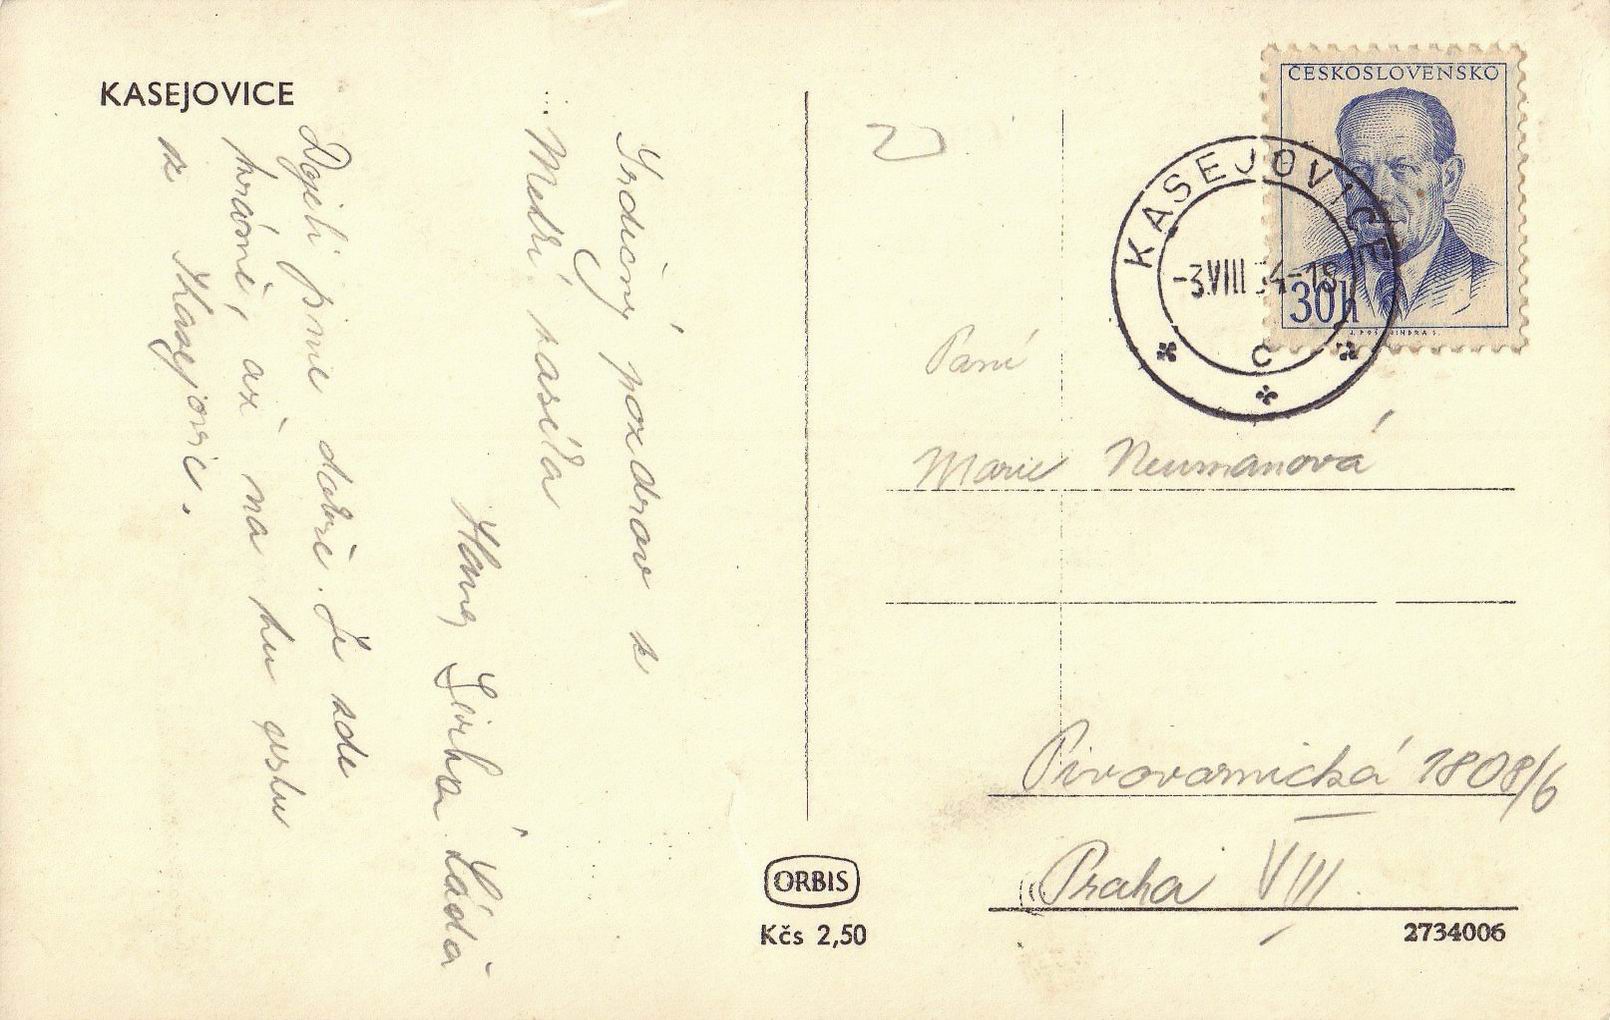 KASEJOVICE
Srdečný pozdrav z
zasílá
Hana Láďa
Dojeli jsme dobře. Je zde
krásně, až na tu cestu
z Kasejovic.
ČESKOSLOVENSKO
30h
KASEJOVICE
-3.VIII 54-18
C
Paní
Marie Neumanová
Pivovarnická 1808/6
Praha VIII
ORBIS
Kčs 2,50
2734006